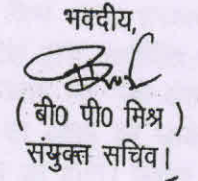 भवदीय,
( बी0 पी0 मिश्र )
संयुक्त सचिव।